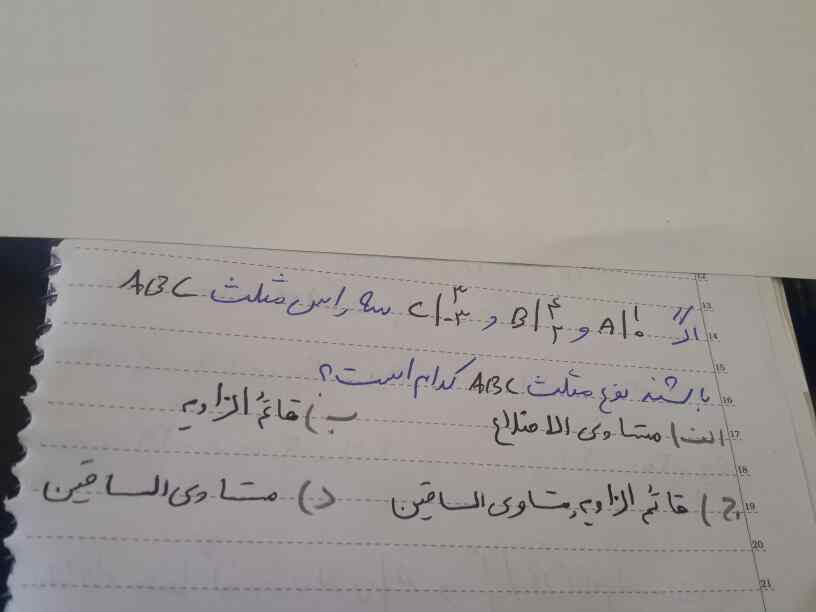 اگر A|۱ ۰ و B|۴ ۲ و C|۳ -۳ سه راس مثلث ABC
باشند نوع مثلث ABC کدام است؟
الف) متساوی الاضلاع ب) قائم الزاویه
ج) قائم الزاویه و متساوی الساقین د) متساوی الساقین
12
13
14
15
16
17
18
19
20
21